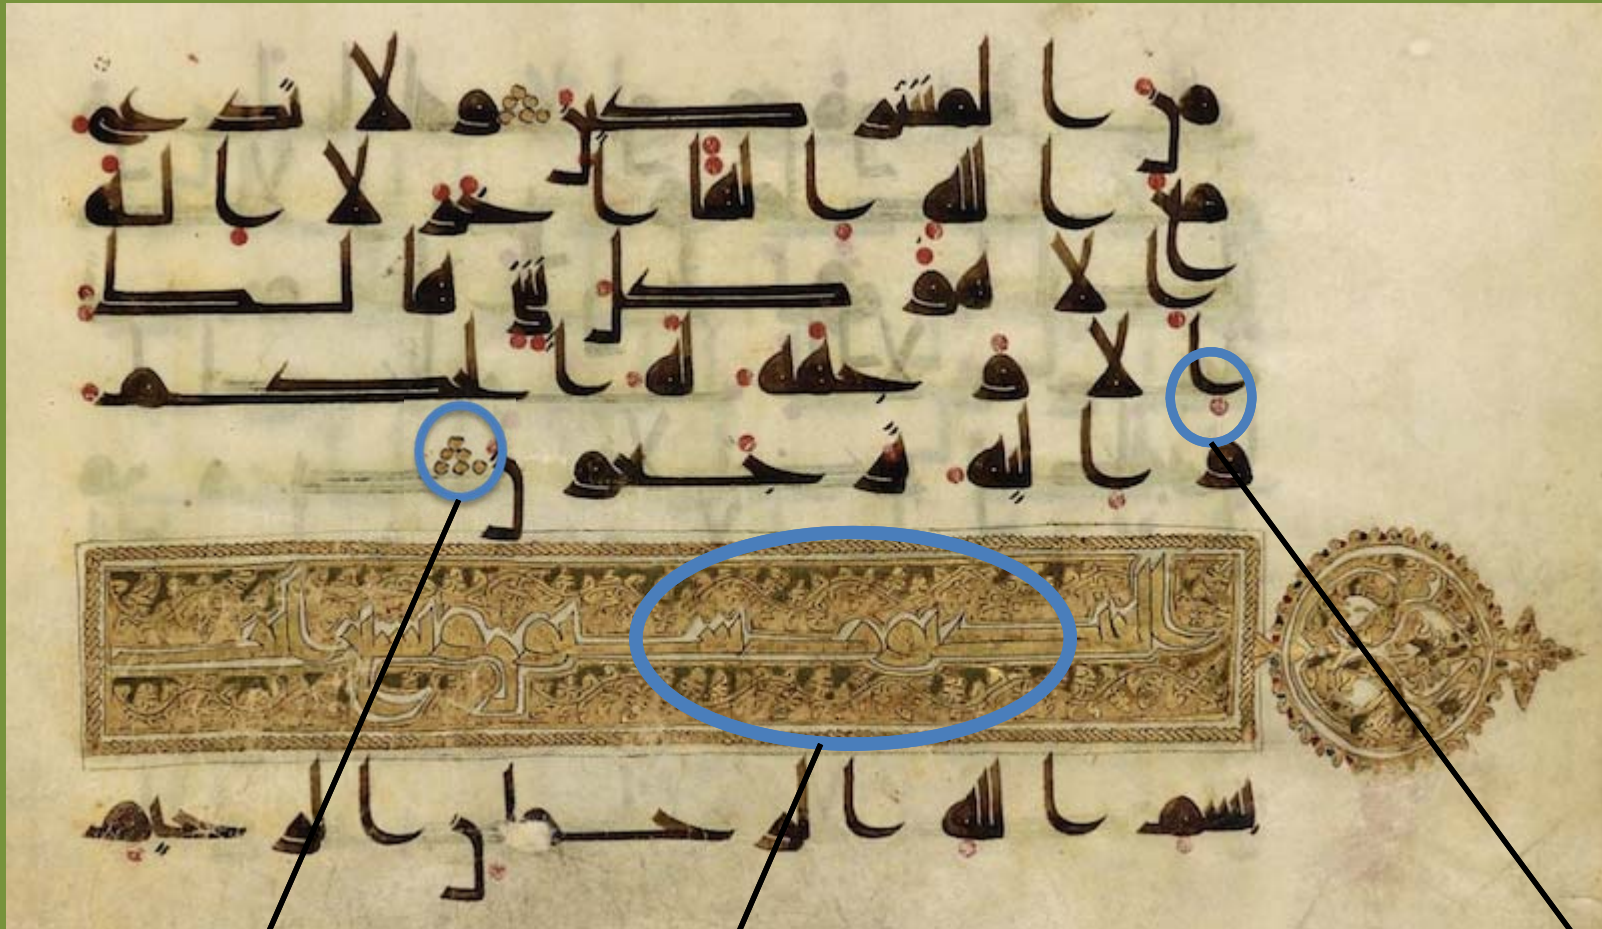 من المشركين ولا تدع
مع الله الها اخر لا اله
الا هو كل شي هالك
الا وجهه له الحكم
واليه ترجعون
العنكبوت
بسم الله الرحمن الرحيم